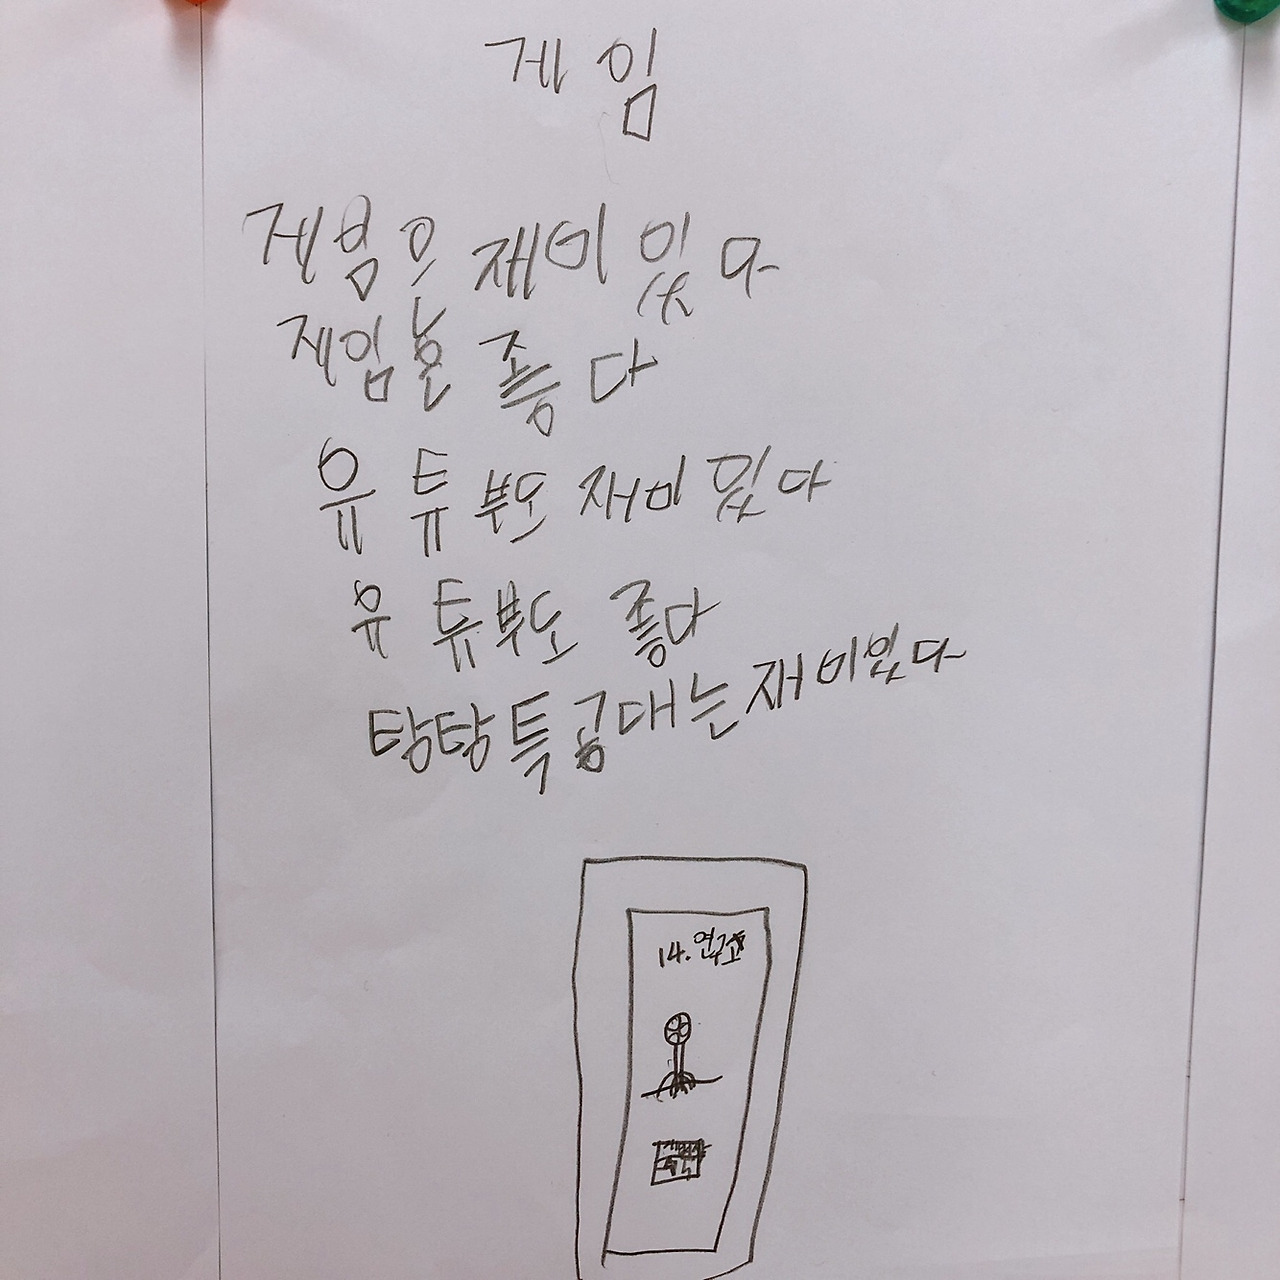 게임
젬은 재미있다
게임은 좋다
유튜부도 재미있다
유튜부도 좋다
탕탕특공대는 재미있다
14. 연구소